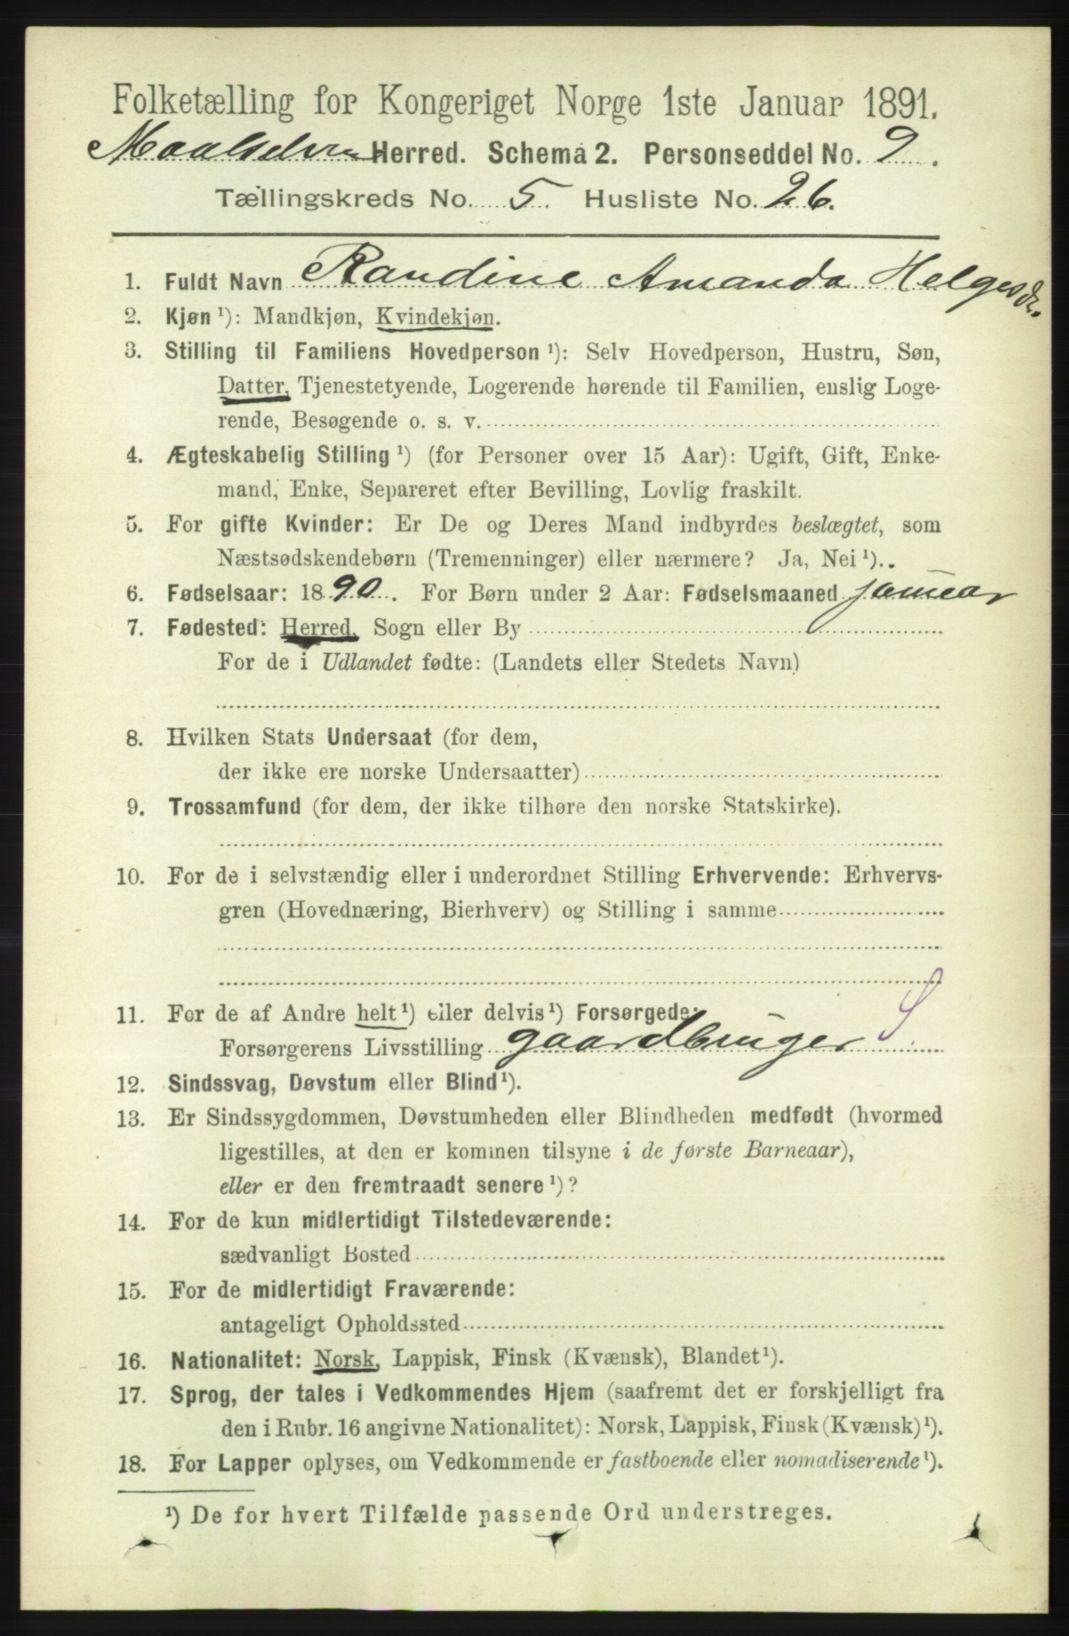 Folketælling for Kongeriget Norge 1ste Januar 1891.
Maalselven Herred. Schema 2. Personseddel No. 9.
Tællingskreds No. 5. Husliste No. 26.
1. Fuldt Navn Randine Amanda Helgesdr.
2. Kjøn ¹): Mandkjøn, Kvindekjøn.
3. Stilling til Familiens Hovedperson ¹): Selv Hovedperson, Hustru, Søn,
Datter, Tjenestetyende, Logerende hørende til Familien, enslig Loge-
rende, Besøgende o. s. v.
4. Ægteskabelig Stilling ¹) (for Personer over 15 Aar): Ugift, Gift, Enke-
mand, Enke, Separeret efter Bevilling, Lovlig fraskilt.
5. For gifte Kvinder: Er De og Deres Mand indbyrdes beslægtet, som
Næstsødskendebørn (Tremenninger) eller nærmere? Ja, Nei ¹)..
6. Fødselsaar: 1890. For Børn under 2 Aar: Fødselsmaaned januar
7. Fødested: Herred, Sogn eller By
For de i Udlandet fødte: (Landets eller Stedets Navn)
8. Hvilken Stats Undersaat (for dem,
der ikke ere norske Undersaatter)
9. Trossamfund (for dem, der ikke tilhøre den norske Statskirke).
10. For de i selvstændig eller i underordnet Stilling Erhvervende: Erhvervs-
gren (Hovednæring, Bierhverv) og Stilling i samme
11. For de af Andre helt ¹) eller delvis ¹) Forsørgede:
Forsørgerens Livsstilling gaardbruger S
12. Sindssvag, Døvstum eller Blind ¹).
13. Er Sindssygdommen, Døvstumheden eller Blindheden medfødt (hvormed
ligestilles, at den er kommen tilsyne i de første Barneaar),
eller er den fremtraadt senere ¹)?
14. For de kun midlertidigt Tilstedeværende:
sædvanligt Bosted
15. For de midlertidigt Fraværende:
antageligt Opholdssted
16. Nationalitet: Norsk, Lappisk, Finsk (Kvænsk), Blandet ¹).
17. Sprog, der tales i Vedkommendes Hjem (saafremt det er forskjelligt fra
den i Rubr. 16 angivne Nationalitet): Norsk, Lappisk, Finsk (Kvænsk) ¹).
18. For Lapper oplyses, om Vedkommende er fastboende eller nomadiserende ¹).
¹) De for hvert Tilfælde passende Ord understreges.